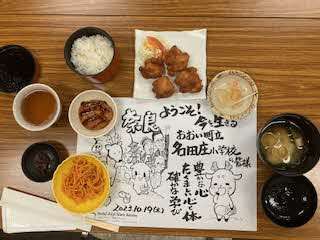 奈良
ようこそ!
今を生きる
おおい町立
名田庄小学校
の皆様
豊かな心
たくましい心と体
確かな学び
2023.10.19(木)